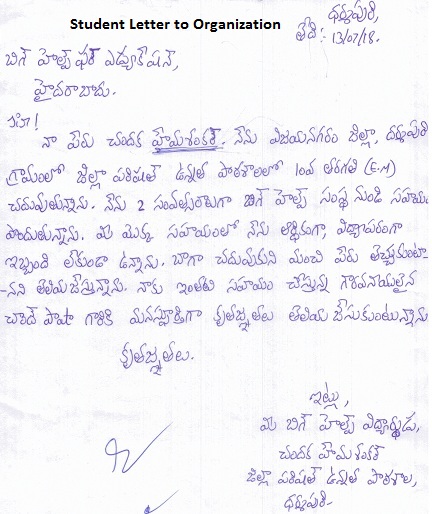 Student Letter to Organization
ధర్మపురి,
తేది : 13/07/18.
బిగ్ హెల్ప్ ఫర్ ఎడ్యుకేషన్,
హైదరాబాదు.
హాయ్!
నా పేరు చందక హేమశంకర్. నేను విజయనగరం జిల్లా, ధర్మపురి
గ్రామంలో జిల్లా పరిషత్ ఉన్నత పాఠశాలలో 10వ తరగతి (E.M)
చదువుతున్నాను. నేను 2 సంవత్సరాలుగా బిగ్ హెల్ప్ సంస్థ నుండి సహాయం
పొందుతున్నాను. మీ యొక్క సహాయంలో నేను ఆర్థికంగా, విద్యాపరంగా
ఇబ్బంది లేకుండా ఉన్నాను. బాగా చదువుకుని మంచి పేరు తెచ్చుకుంటా-
-నని తెలియజేస్తున్నాను. నాకు ఇంతటి సహాయం చేస్తున్న గౌరవనీయులైన
చాంద్ పాషా గారికి మనస్ఫూర్తిగా కృతజ్ఞతలు తెలియజేసుకుంటున్నాను
కృతజ్ఞతలు.
ఇట్లు,
మీ బిగ్ హెల్ప్ విద్యార్థుడు,
చందక హేమశంకర్
జిల్లా పరిషత్ ఉన్నత పాఠశాల,
ధర్మపురి-